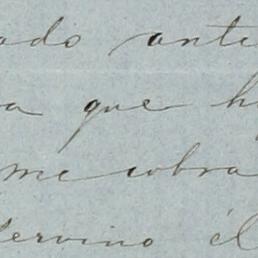 ado ante
a que h
me cobra
servino él